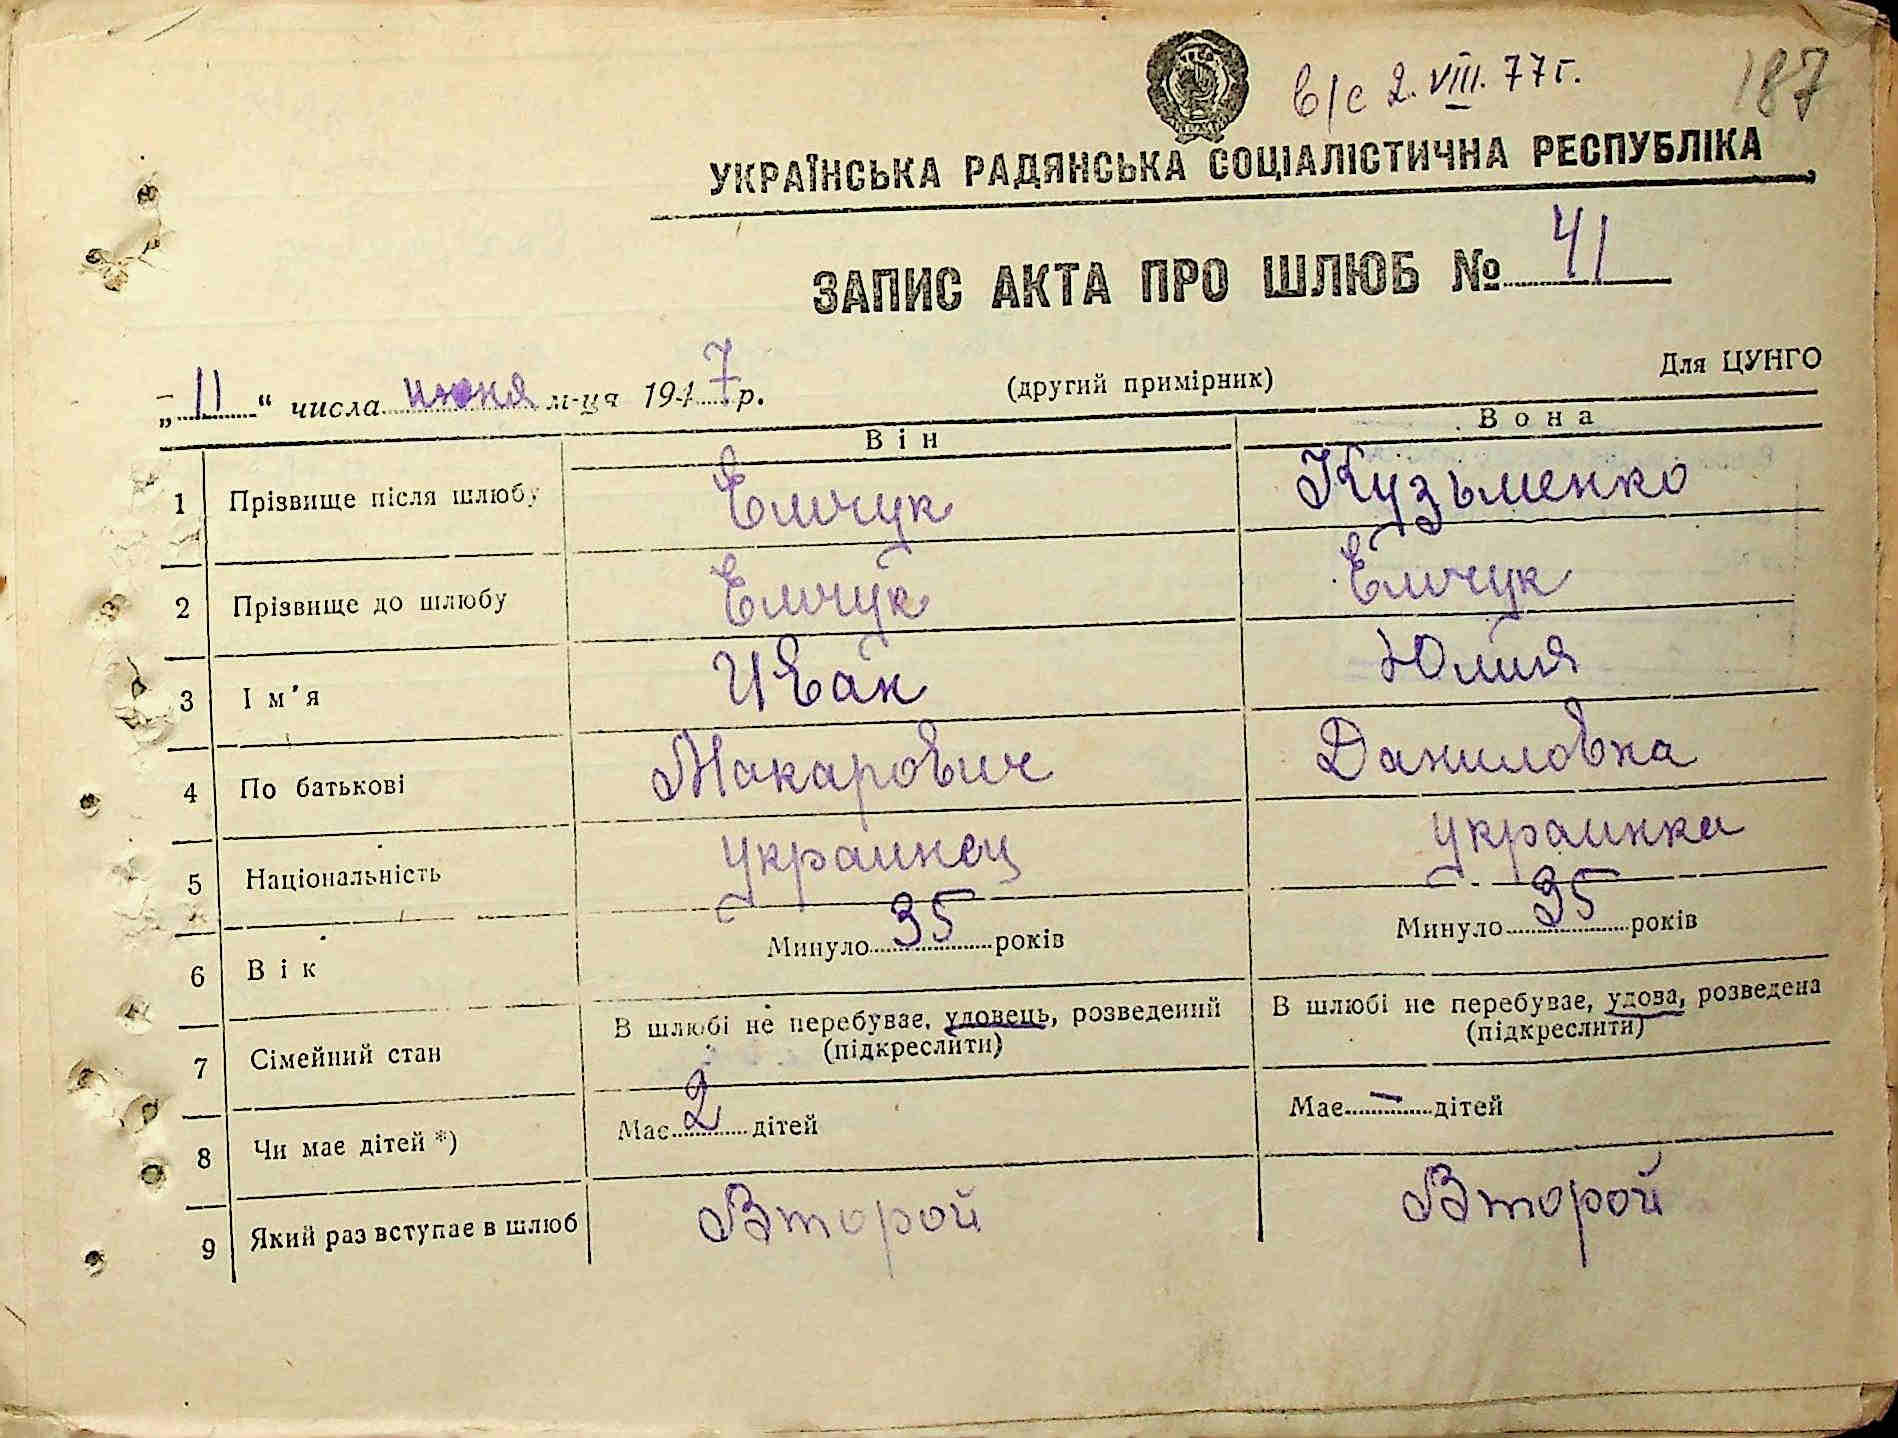 в/с 2. VIII. 77 г.
187
УКРАЇНСЬКА РАДЯНСЬКА СОЦІАЛІСТИЧНА РЕСПУБЛІКА
ЗАПИС АКТА ПРО ШЛЮБ № 41
„11“ числа июня м-ця 1947 р.
(другий примірник)
Для ЦУНГО
Він Вона
1 Прізвище після шлюбу Емчук Кузьменко
2 Прізвище до шлюбу Емчук Емчук
3 Ім'я Иван Юлия
4 По батькові Макарович Даниловна
5 Національність украинец украинка
6 Вік Минуло 35 років Минуло 35 років
7 Сімейний стан В шлюбі не перебуває, удовець, розведений (підкреслити) В шлюбі не перебуває, удова, розведена (підкреслити)
8 Чи має дітей *) Має 2 дітей Має — дітей
9 Який раз вступає в шлюб Второй Второй